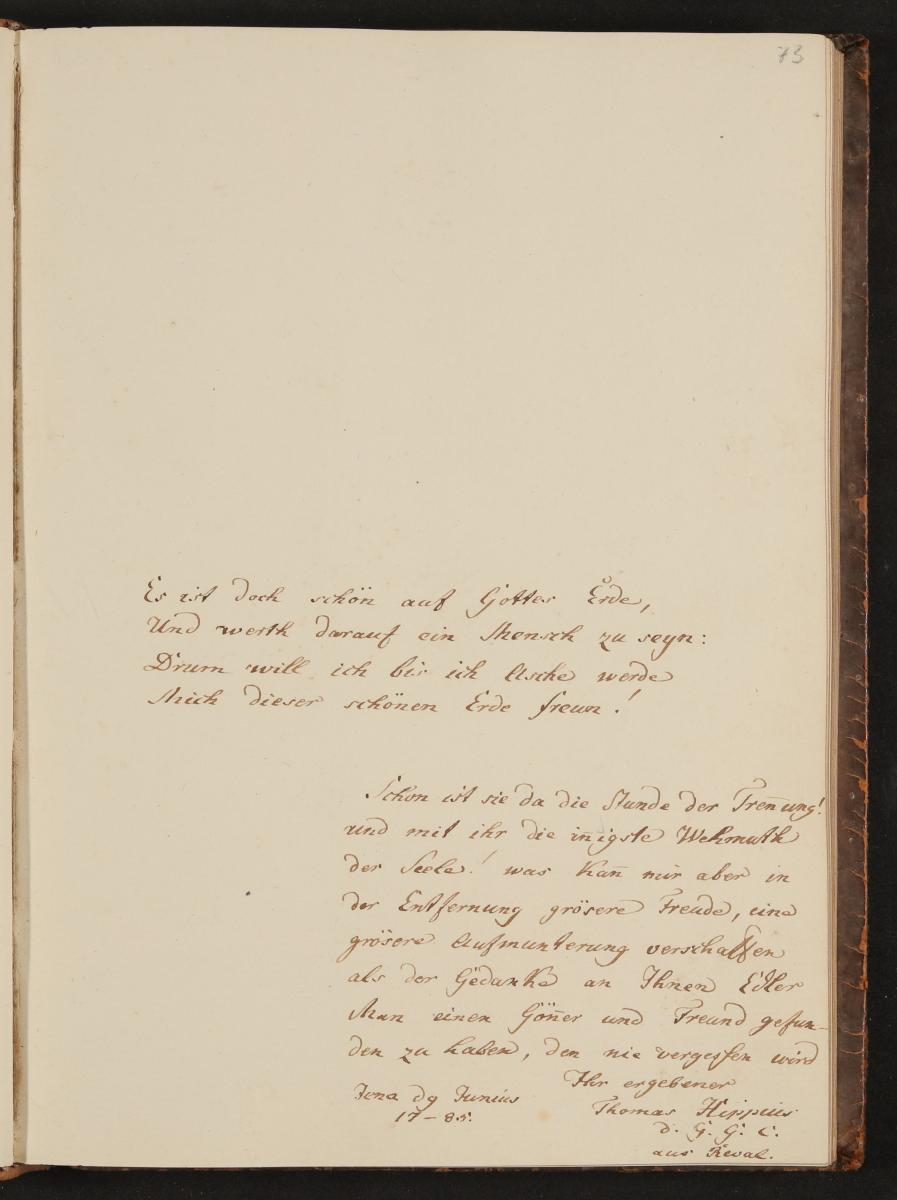 73
Es ist doch schön auf Gottes Erde,
Und werth darauf ein Mensch zu seyn:
D'rum will ich bis ich Asche werde
Mich dieser schönen Erde freun!
Schon ist sie da die Stunde der Treñung!
und mit ihr die iñigste Wehmuth
der Seele! was kañ mir aber in
der Entfernung grösere Freude, eine
grösere Aufmunterung verschaffen
als der Gedanke an Ihnen Edler
Man einen Göñer und Freund gefun-
den zu haben, den nie vergessen wird
Ihr ergebener
Jena d 9 Junius
Thomas Hippius
17-85.
d. G. G. C.
aus Reval.